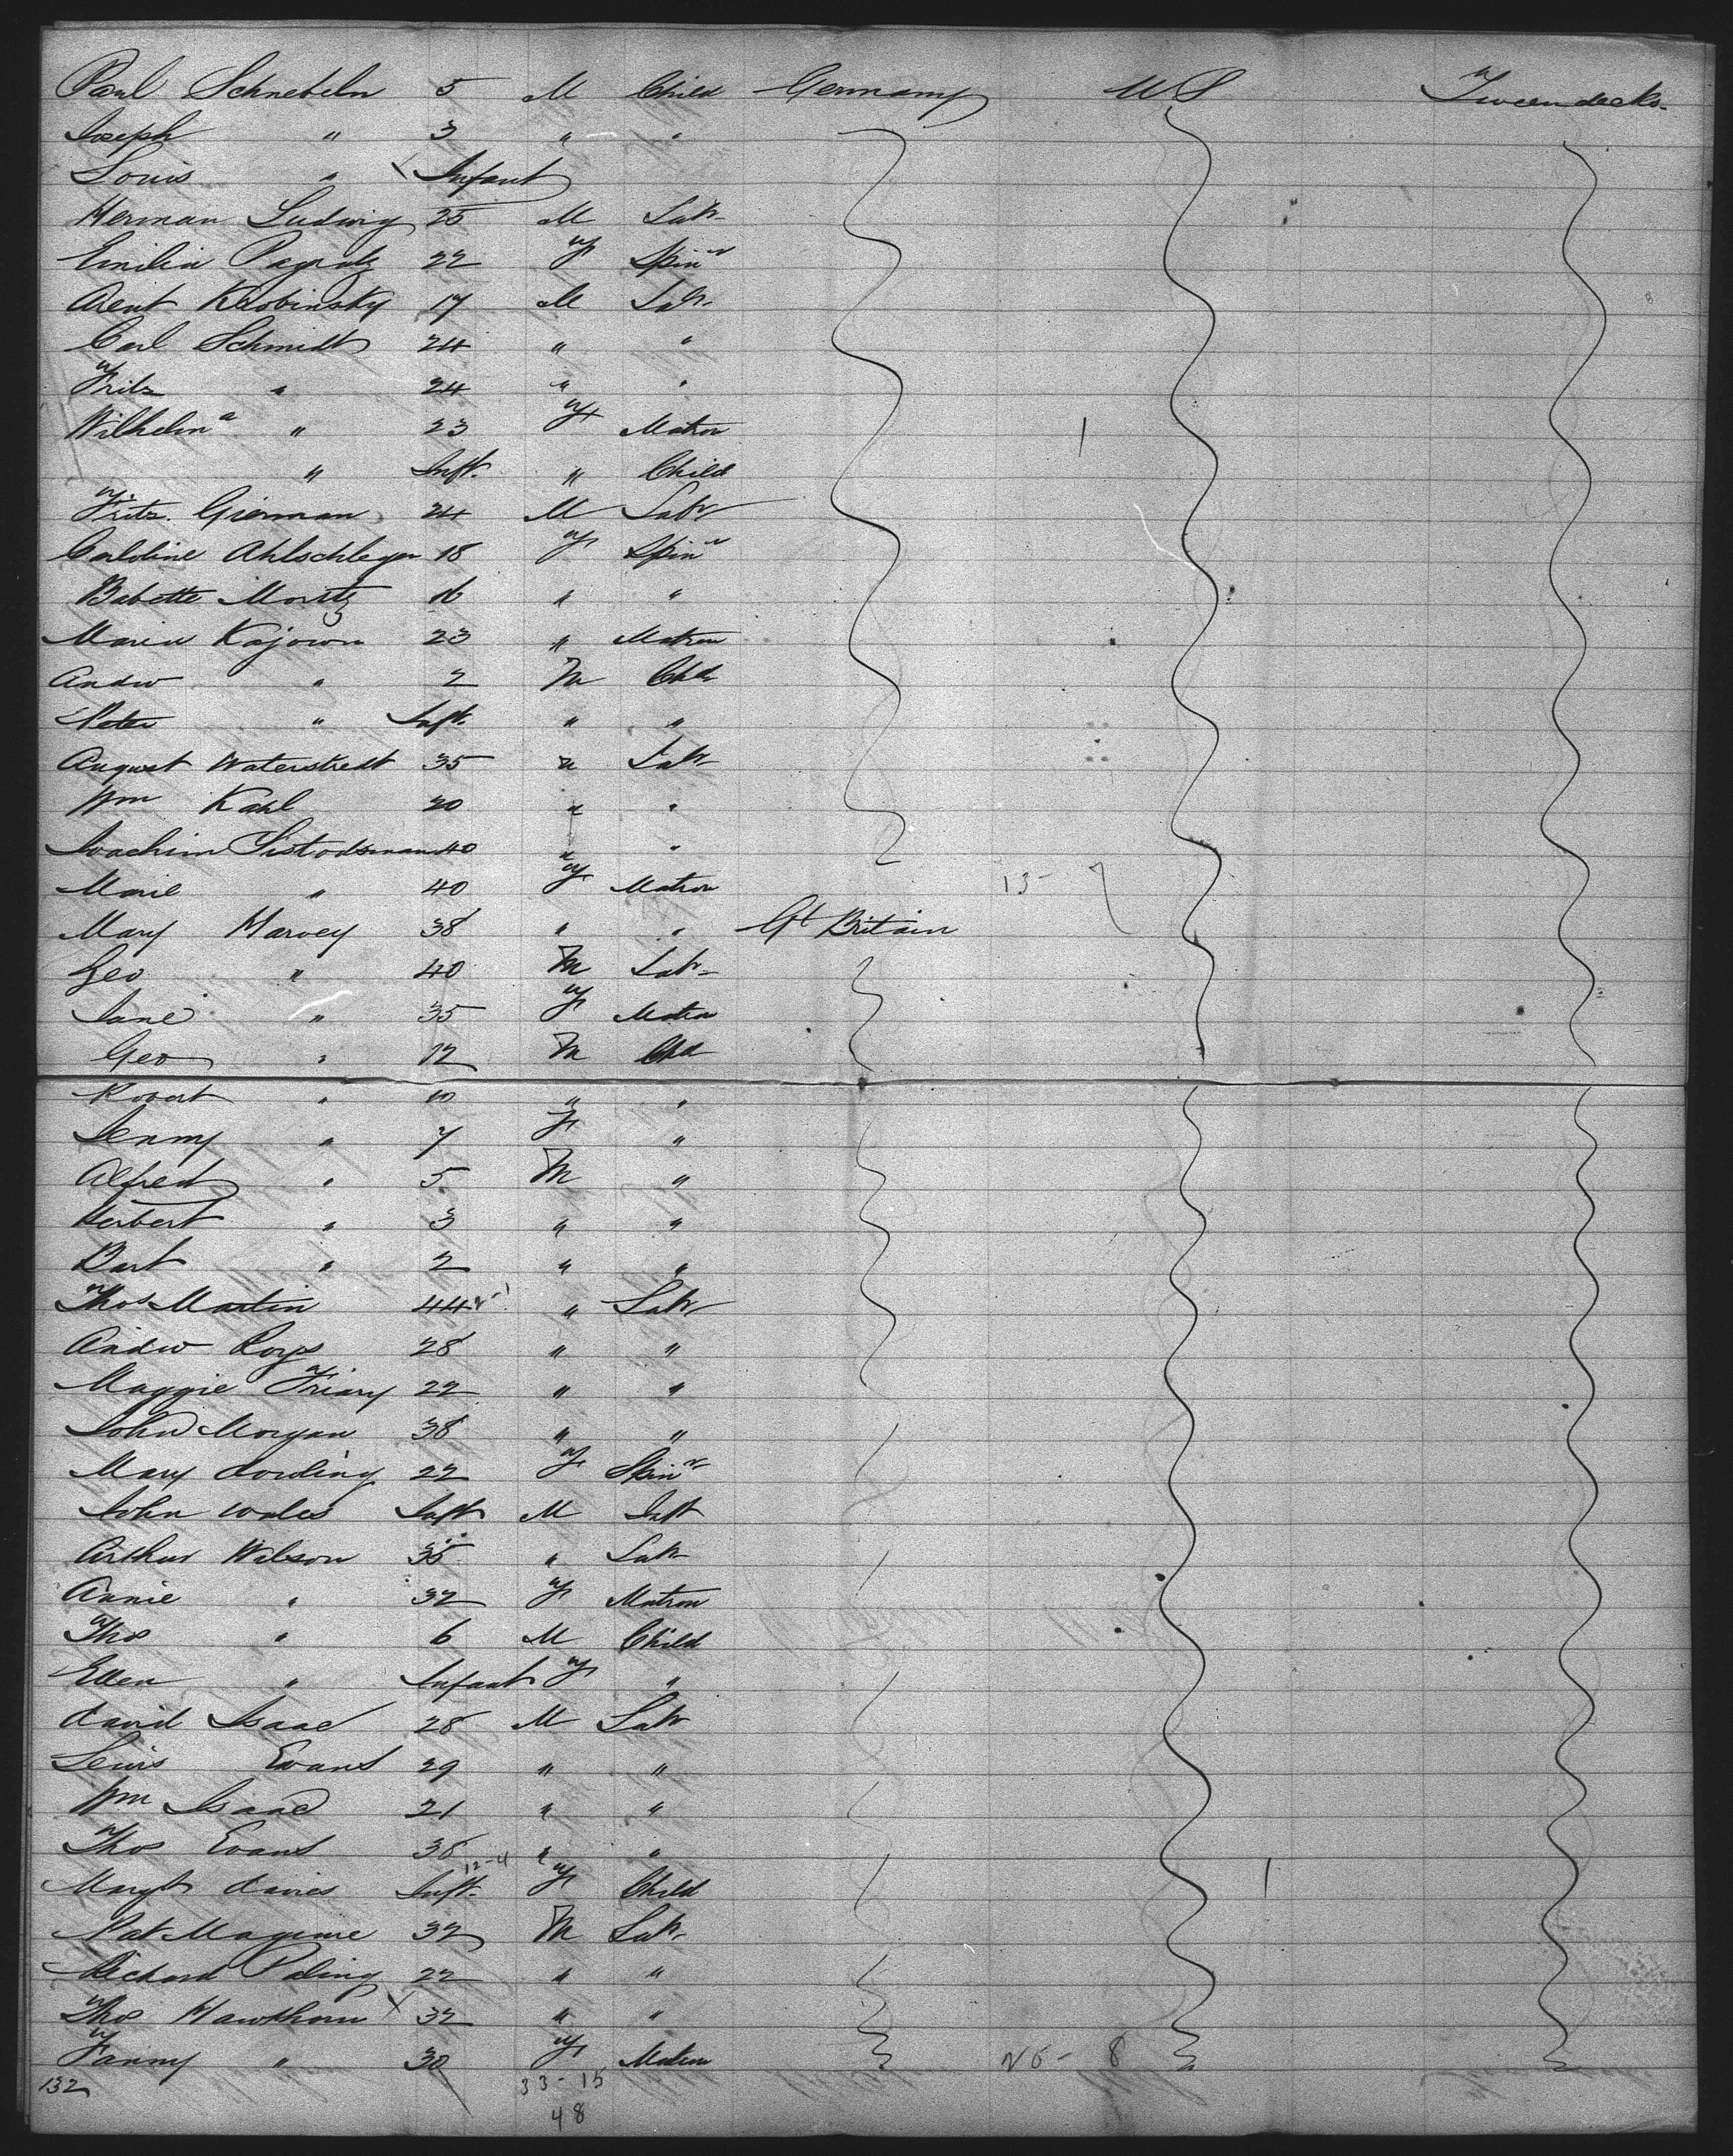 Paul Schnebeln 5 M Child Germany US Tweendecks
Joseph " 3 " "
Louis " Infant
Herman Ludwig 25 M Labr
Emilia 22 F Spinr
Arent 17 M Labr
Carl Schmidt 24 " "
Fritz " 24 " "
Wilhelma " 23 F Matron
" Inft. " Child
Fritz Gierman 24 M Labr
Caroline Ahlschleger 18 F Spinr
Babette Moritz 16 " "
Maria Kajown 23 " Matron
Andw " 2 M Chd
Peter " Inft. " "
August Waterstredt 35 " Labr
Wm Kahl 20 " "
Joachim 40 " "
Marie " 40 F Matron 13 - 7
Mary Harvey 38 " " Gt Britain
Geo " 40 M Labr
Jane " 35 F Matron
Geo " 12 M Chd
Robert " 10 " "
Jenny " 7 F "
Alfred " 5 M "
Herbert " 3 " "
Bart " 2 " "
Thos Martin 44 " Labr
Andw 28 " "
Maggie Friary 22 " "
John Morgan 38 " "
Mary Dowling 22 F Spinr
John Wales Inft M Inft
Arthur Wilson 35 " Labr
Annie " 32 F Matron
Thos " 6 M Child
Ellen " Infant F "
David Isaac 28 M Labr
Lewis Evans 29 " "
Wm Isaac 21 " "
Thos Evans 38 " "
12-4
Margt Davies Inft. F Child
Pat Maguire 32 M Labr
Richard Paling 22 " "
Thos Hawthorn X 32 " "
Fanny " 30 F Matron 20 - 8
132 33-15
48